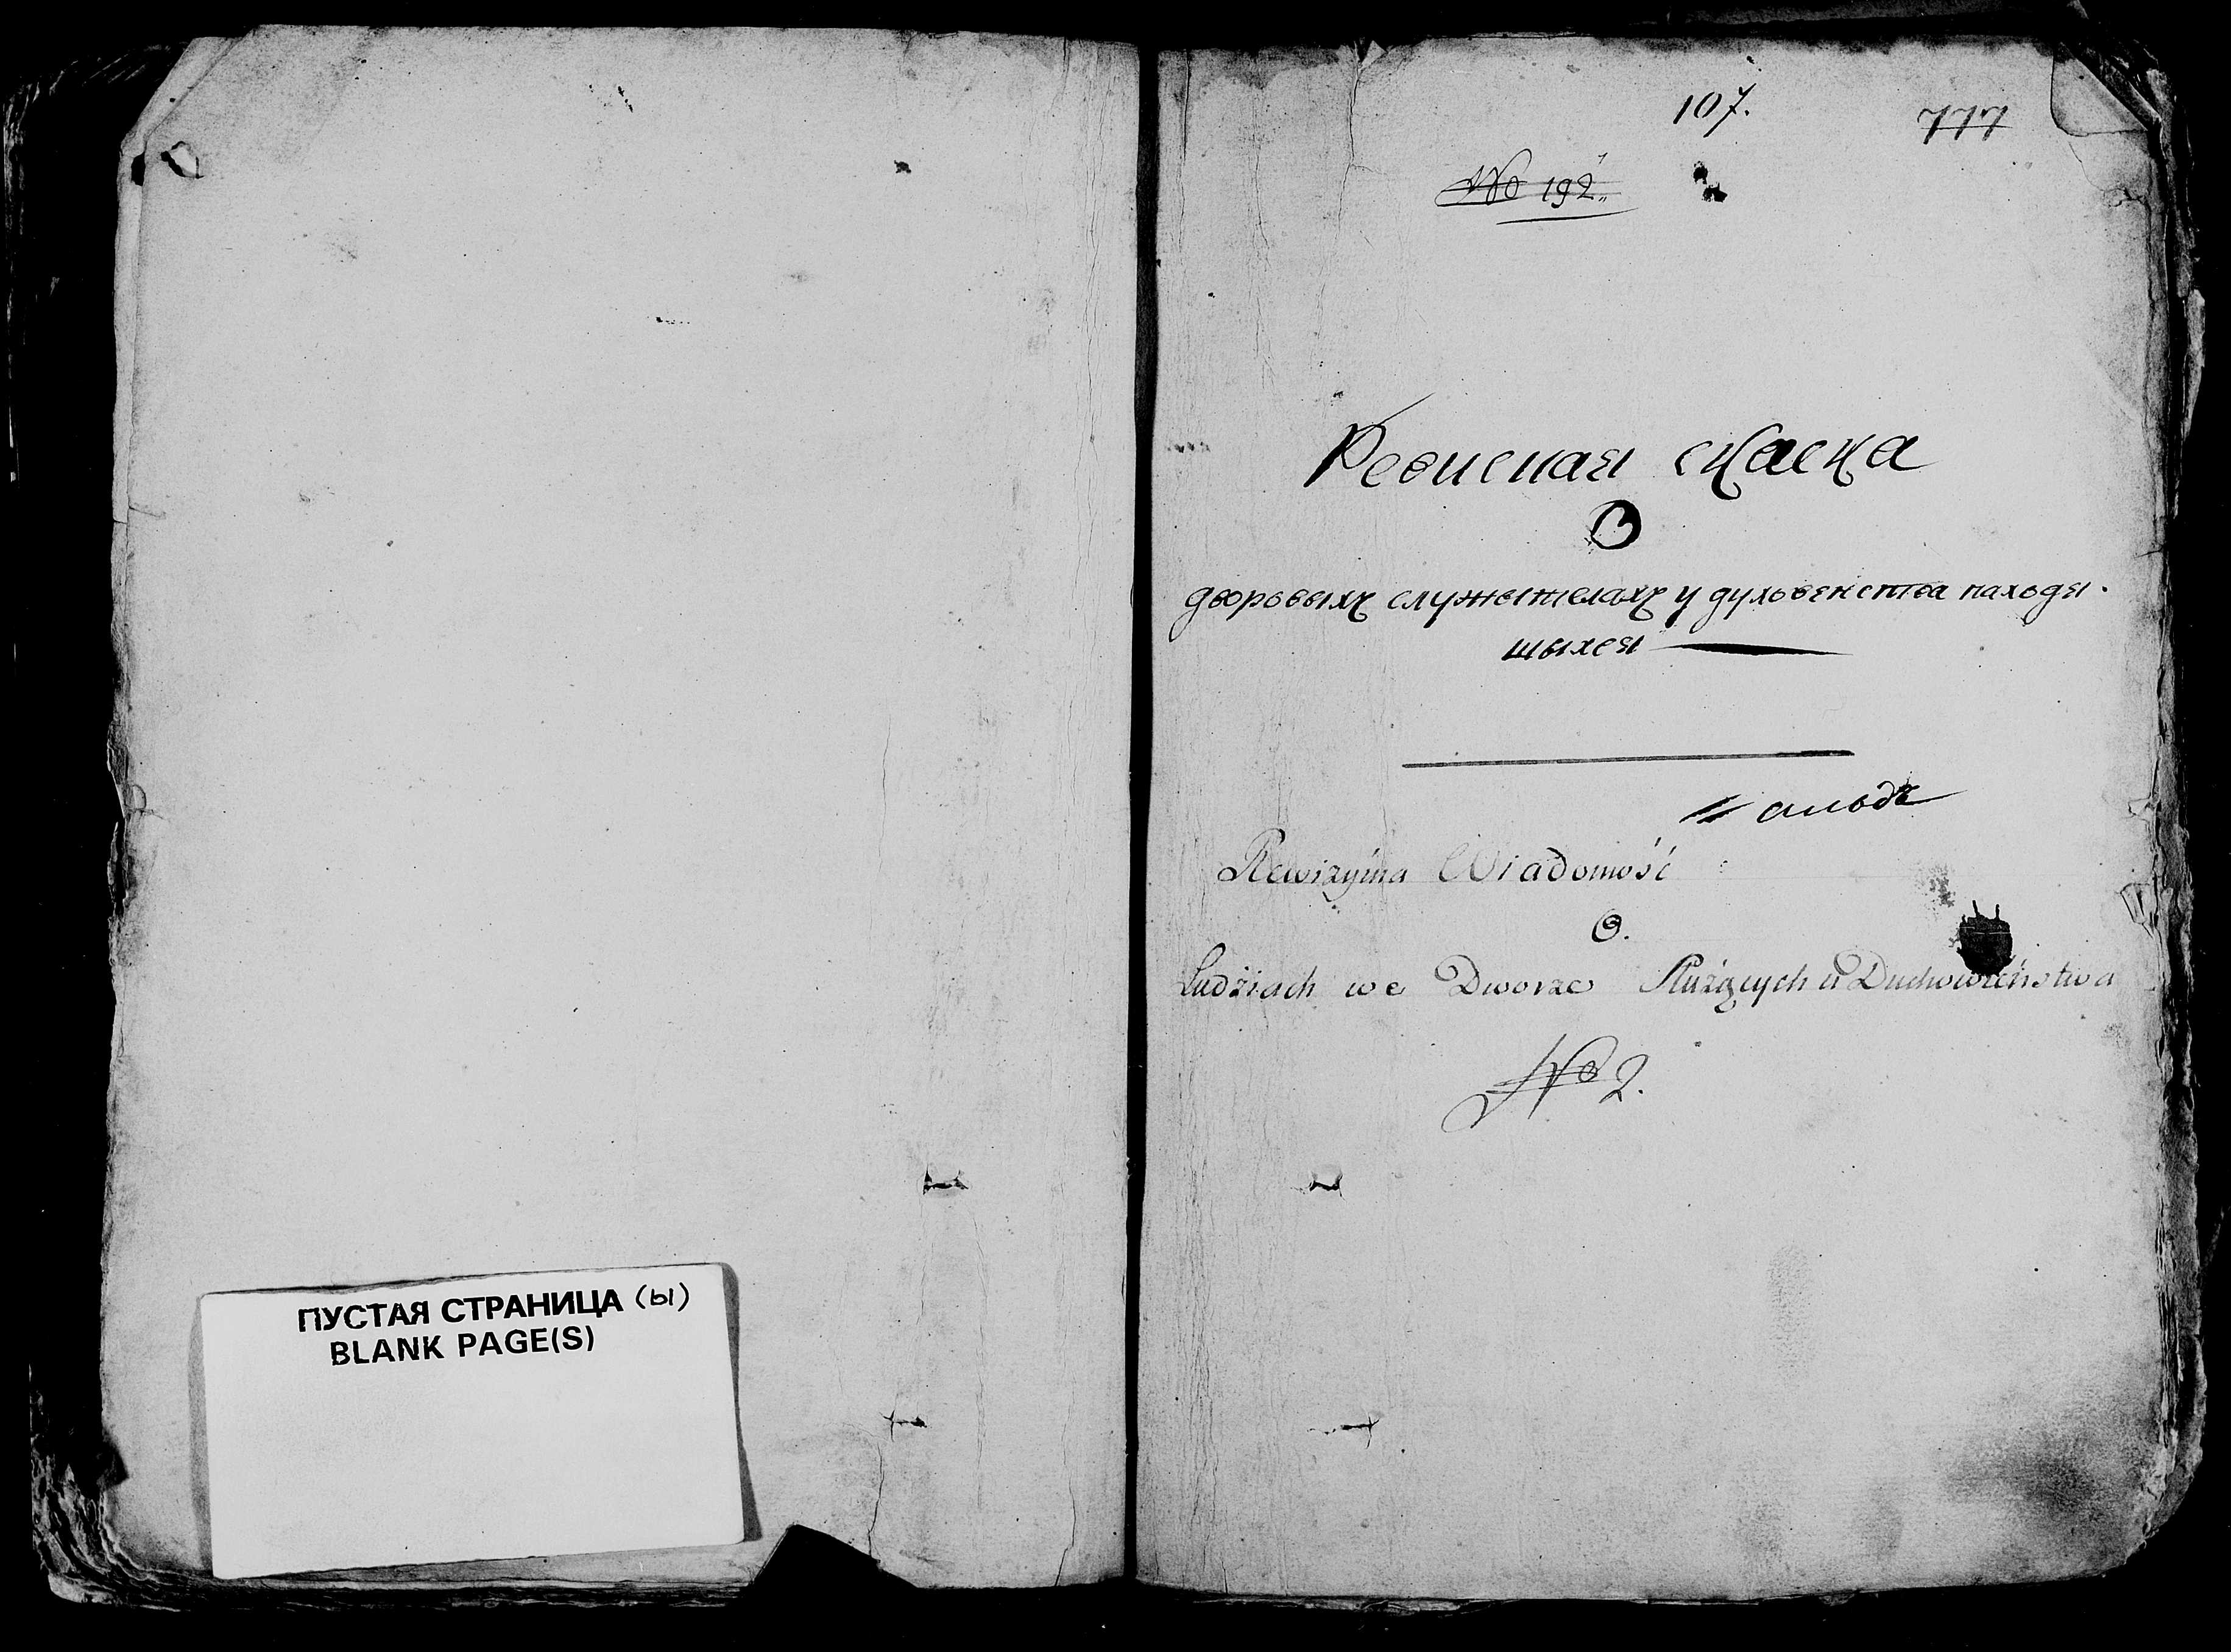 ПУСТАЯ СТРАНИЦА (ы)
BLANK PAGE(S)
107.
777
No 192
Ревиспая скаска
О
дворовыхъ служытелахъ у духовенства находя
шыхся
Rewizyina Wiadomość
O.
Ludziach we Dworze Służących u Duchowieństwa
No 2.